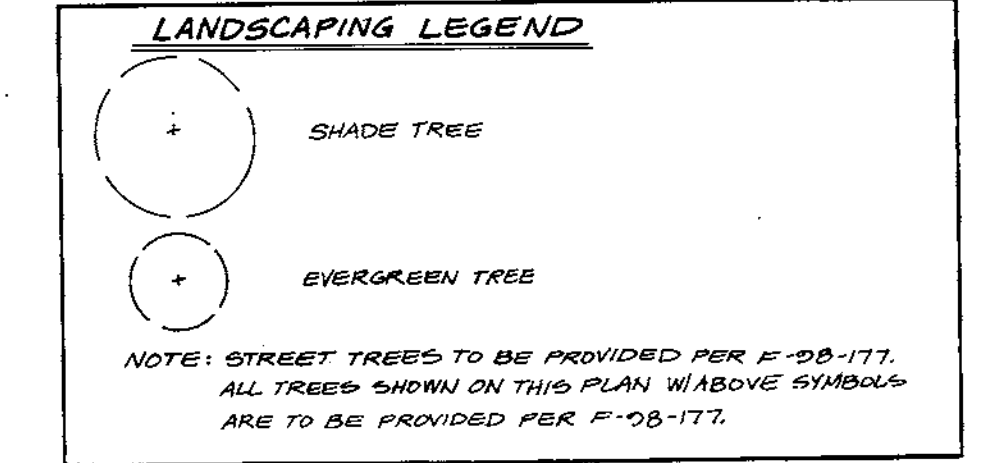 LANDSCAPING LEGEND
SHADE TREE
EVERGREEN TREE
NOTE: STREET TREES TO BE PROVIDED PER F-98-177.
ALL TREES SHOWN ON THIS PLAN W/ABOVE SYMBOLS
ARE TO BE PROVIDED PER F-98-177.